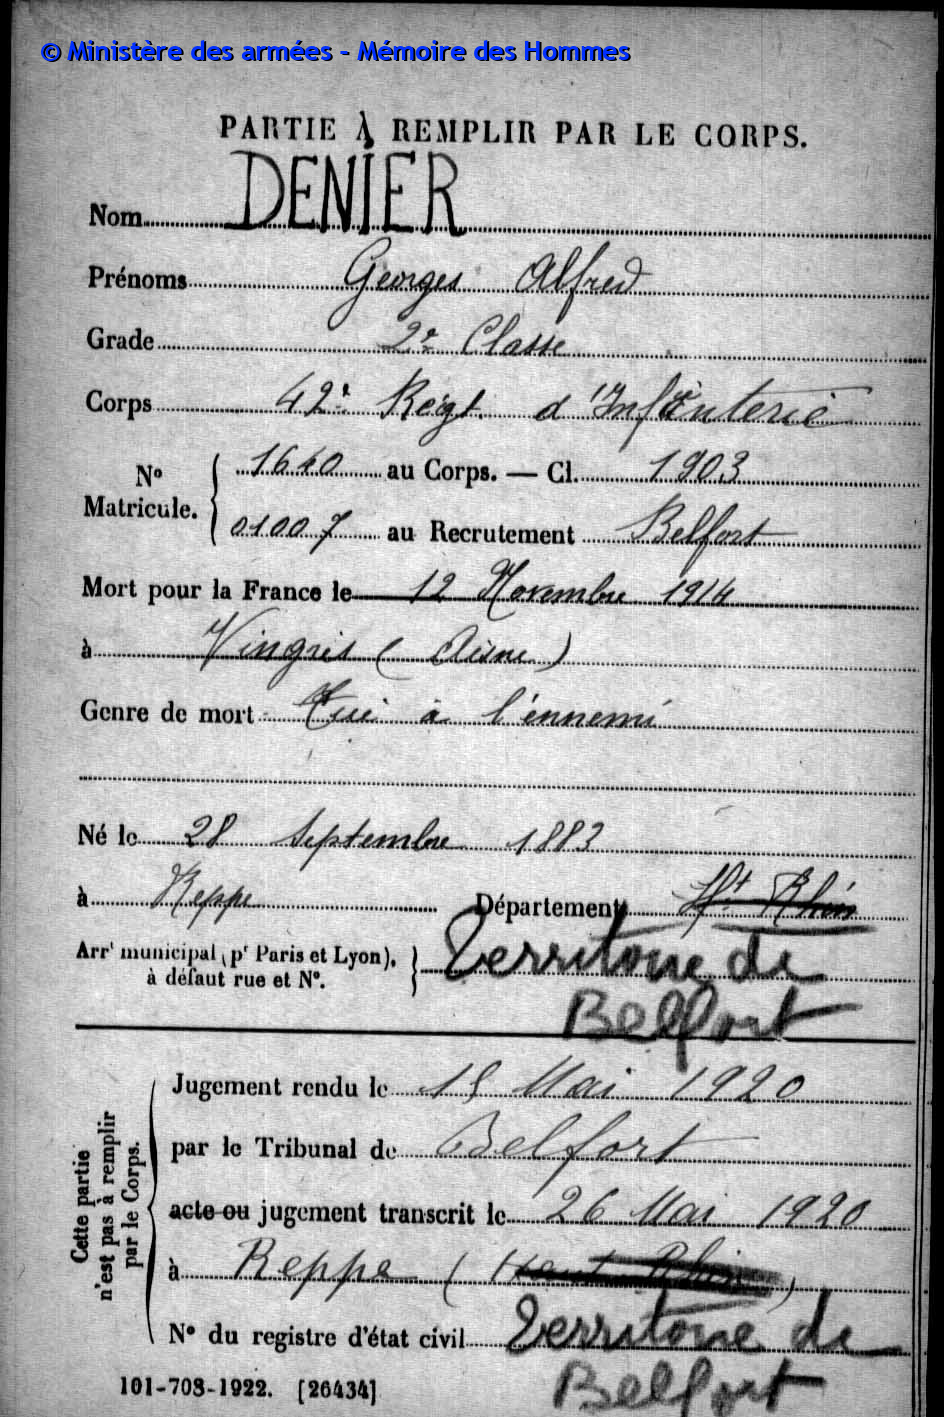 © Ministère des armées - Mémoire des Hommes
PARTIE À REMPLIR PAR LE CORPS.
Nom DENIER
Prénoms Georges Alfred
Grade 2e Classe
Corps 42e Régt d'Infanterie
N° Matricule. 1640 au Corps. — Cl. 1903
01007 au Recrutement Belfort
Mort pour la France le 12 Novembre 1914
à Vingris (Aisne)
Genre de mort Tué à l'ennemi
Né le 28 Septembre 1883
à Reppe Département Ht Rhin
Arrt municipal (pr Paris et Lyon), à défaut rue et N°. Territoire de
Belfort
Cette partie n'est pas à remplir par le Corps.
Jugement rendu le 15 Mai 1920
par le Tribunal de Belfort
acte ou jugement transcrit le 26 Mai 1920
à Reppe (Haut Rhin)
N° du registre d'état civil Territoire de
101-708-1922. [26434] Belfort